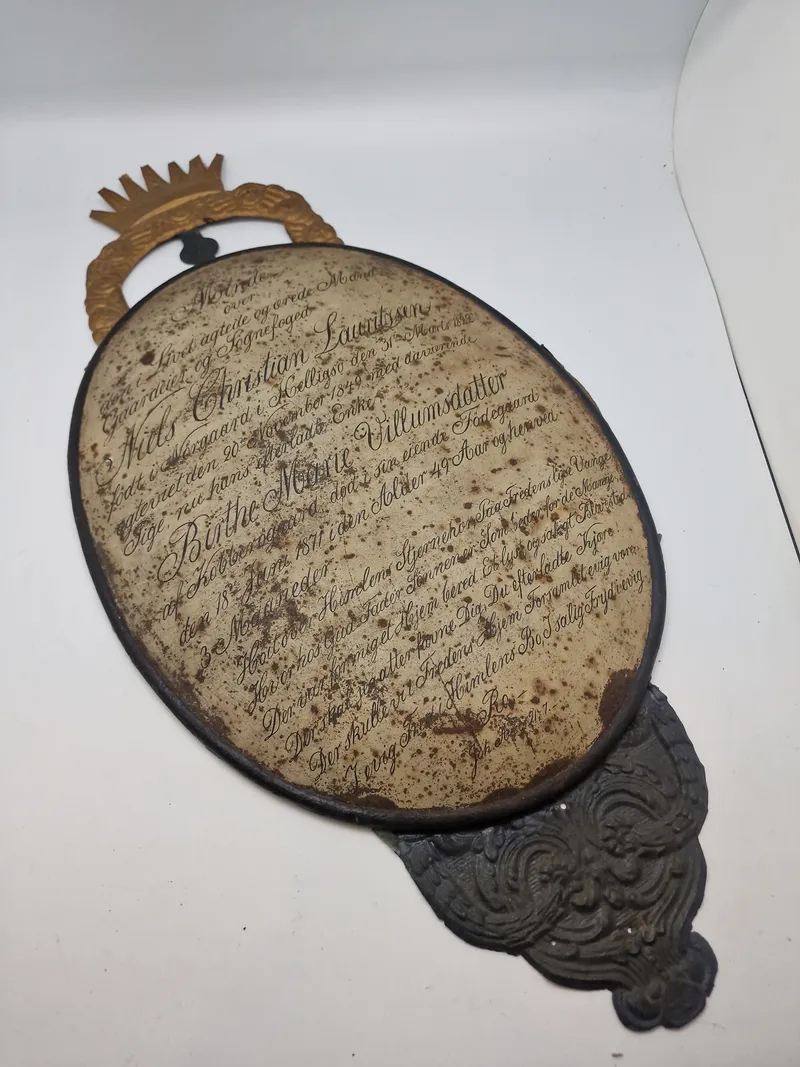 Minde
over
Livet agtede og ærede Mand
Gaardeier og Sognefoged
Niels Christian Lauritssen
født i Nørgaard i Helligsø den 31te Marts 1822
den 20de November 1849 med daværende
Pige nu hans efterladte Enke
Birthe Marie Villumsdatter
af Kobberøgaard, død i sin eiende Fødegaard
den 18de Juni 1871 i den Alder 49 Aar og henved
3 Maaneder
Høit over Himlens Stjernehær, Paa Fredens lyse Vange
Hu er hos Gud Fader Sønnen er Som beder for de Mange
Der var for mig et Hjem bered Et lyst og saligt Blivested
Der skal jeg atter havne Dig, Du efterladte Kjære
Der skulle vi i Fredens Hjem Forsamlet evig være
I evig Fred i Himlens Bo, I salig Fryd evig
Ro